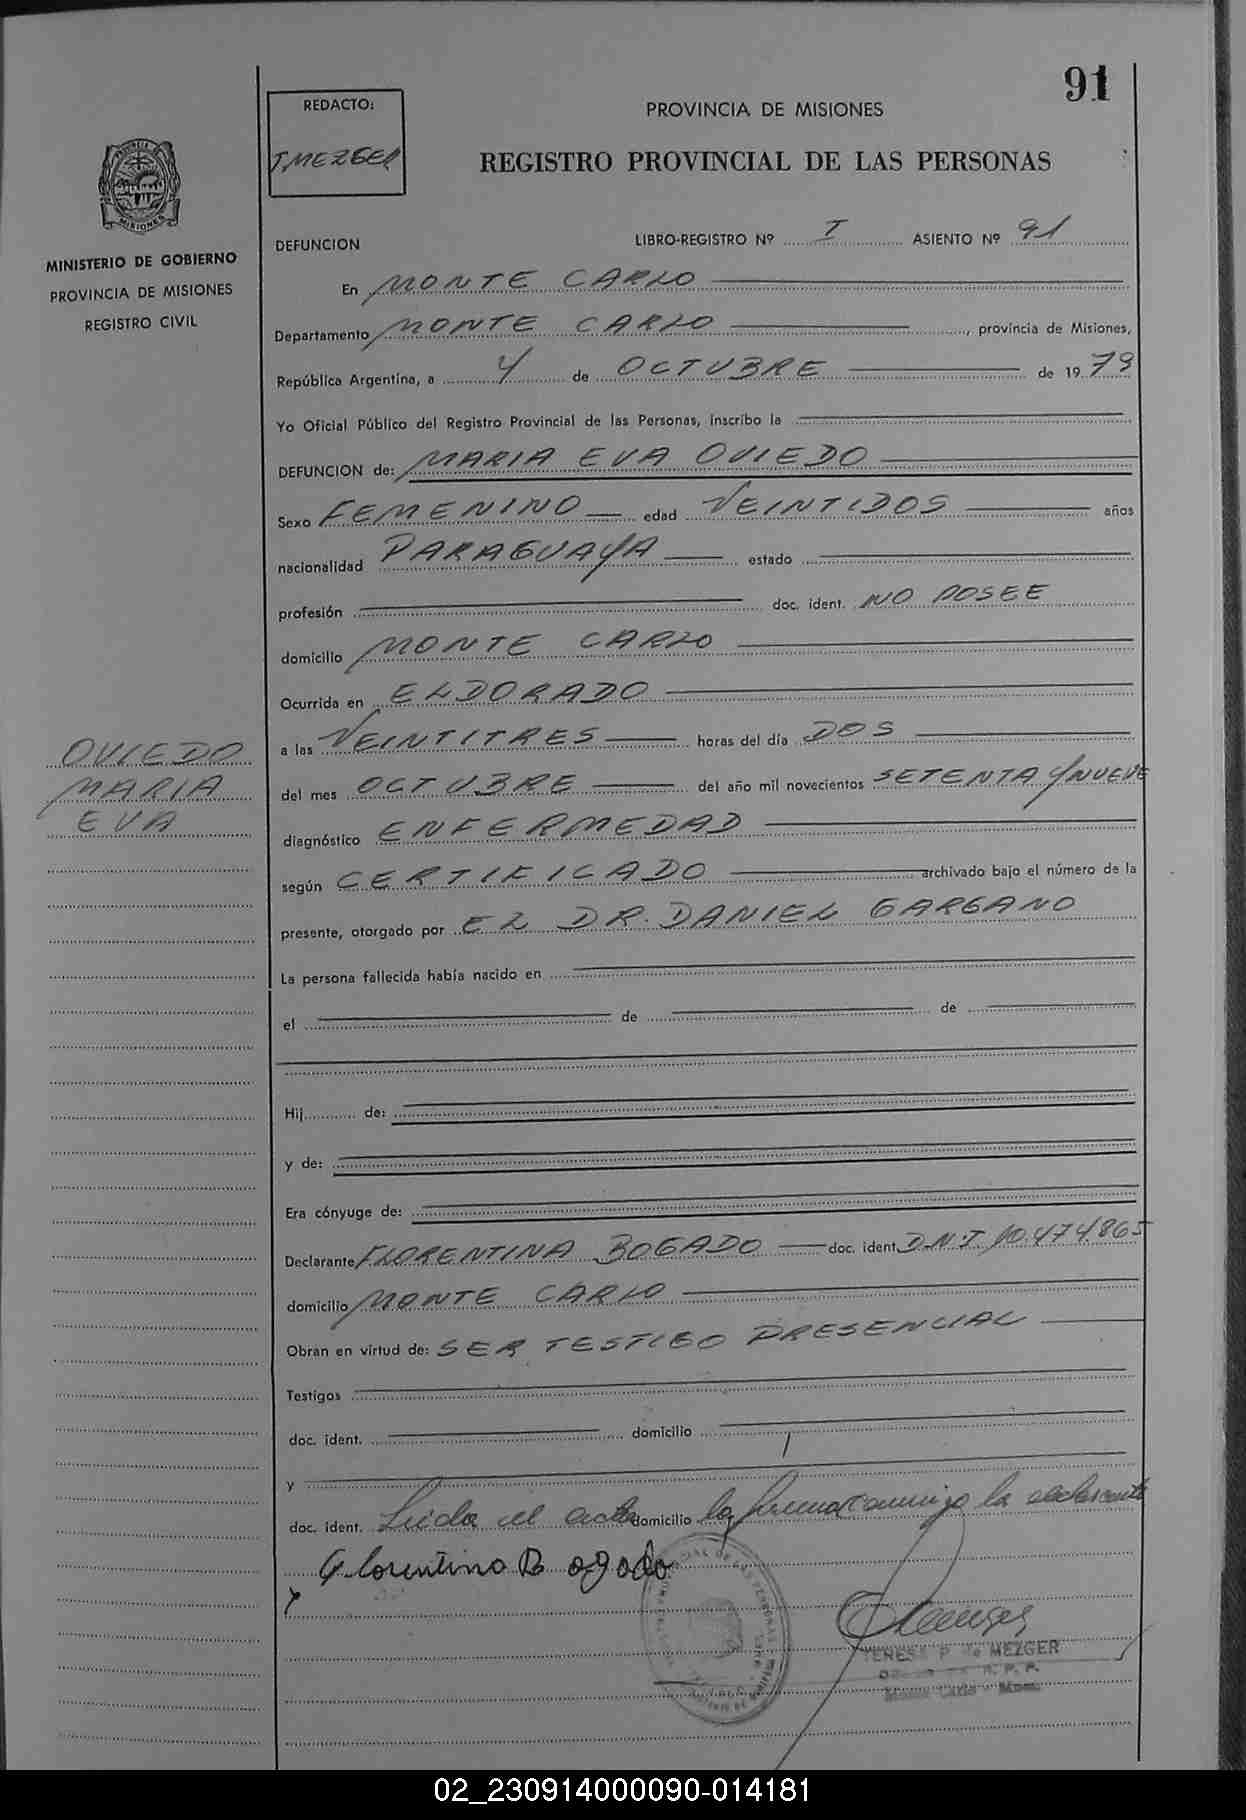 91
REDACTO:
T. MEZGER
PROVINCIA DE MISIONES
REGISTRO PROVINCIAL DE LAS PERSONAS
MISIONES
MINISTERIO DE GOBIERNO
PROVINCIA DE MISIONES
REGISTRO CIVIL
DEFUNCION LIBRO-REGISTRO Nº I ASIENTO Nº 91
En MONTE CARLO
Departamento MONTE CARLO, provincia de Misiones,
República Argentina, a 4 de OCTUBRE de 1979
Yo Oficial Público del Registro Provincial de las Personas, inscribo la
DEFUNCION de: MARIA EVA OVIEDO
Sexo FEMENINO edad VEINTIDOS años
nacionalidad PARAGUAYA estado
profesión doc. ident. NO POSEE
domicilio MONTE CARLO
Ocurrida en ELDORADO
a las VEINTITRES horas del día DOS
del mes OCTUBRE del año mil novecientos SETENTA Y NUEVE
diagnóstico ENFERMEDAD
según CERTIFICADO archivado bajo el número de la
presente, otorgado por EL DR. DANIEL GARGANO
La persona fallecida había nacido en
el de de
Hij de:
y de:
Era cónyuge de:
Declarante FLORENTINA BOGADO doc. ident. D.N.I 10.474865
domicilio MONTE CARLO
Obran en virtud de: SER TESTIGO PRESENCIAL
Testigos
doc. ident. domicilio
y
doc. ident. Leida el acta domicilio la firma conmigo la declarante
Florentina Bogado
TERESA P. de MEZGER
R. P. P.
Monte Carlo - Mnes.
OVIEDO
MARIA
EVA
02_230914000090-014181